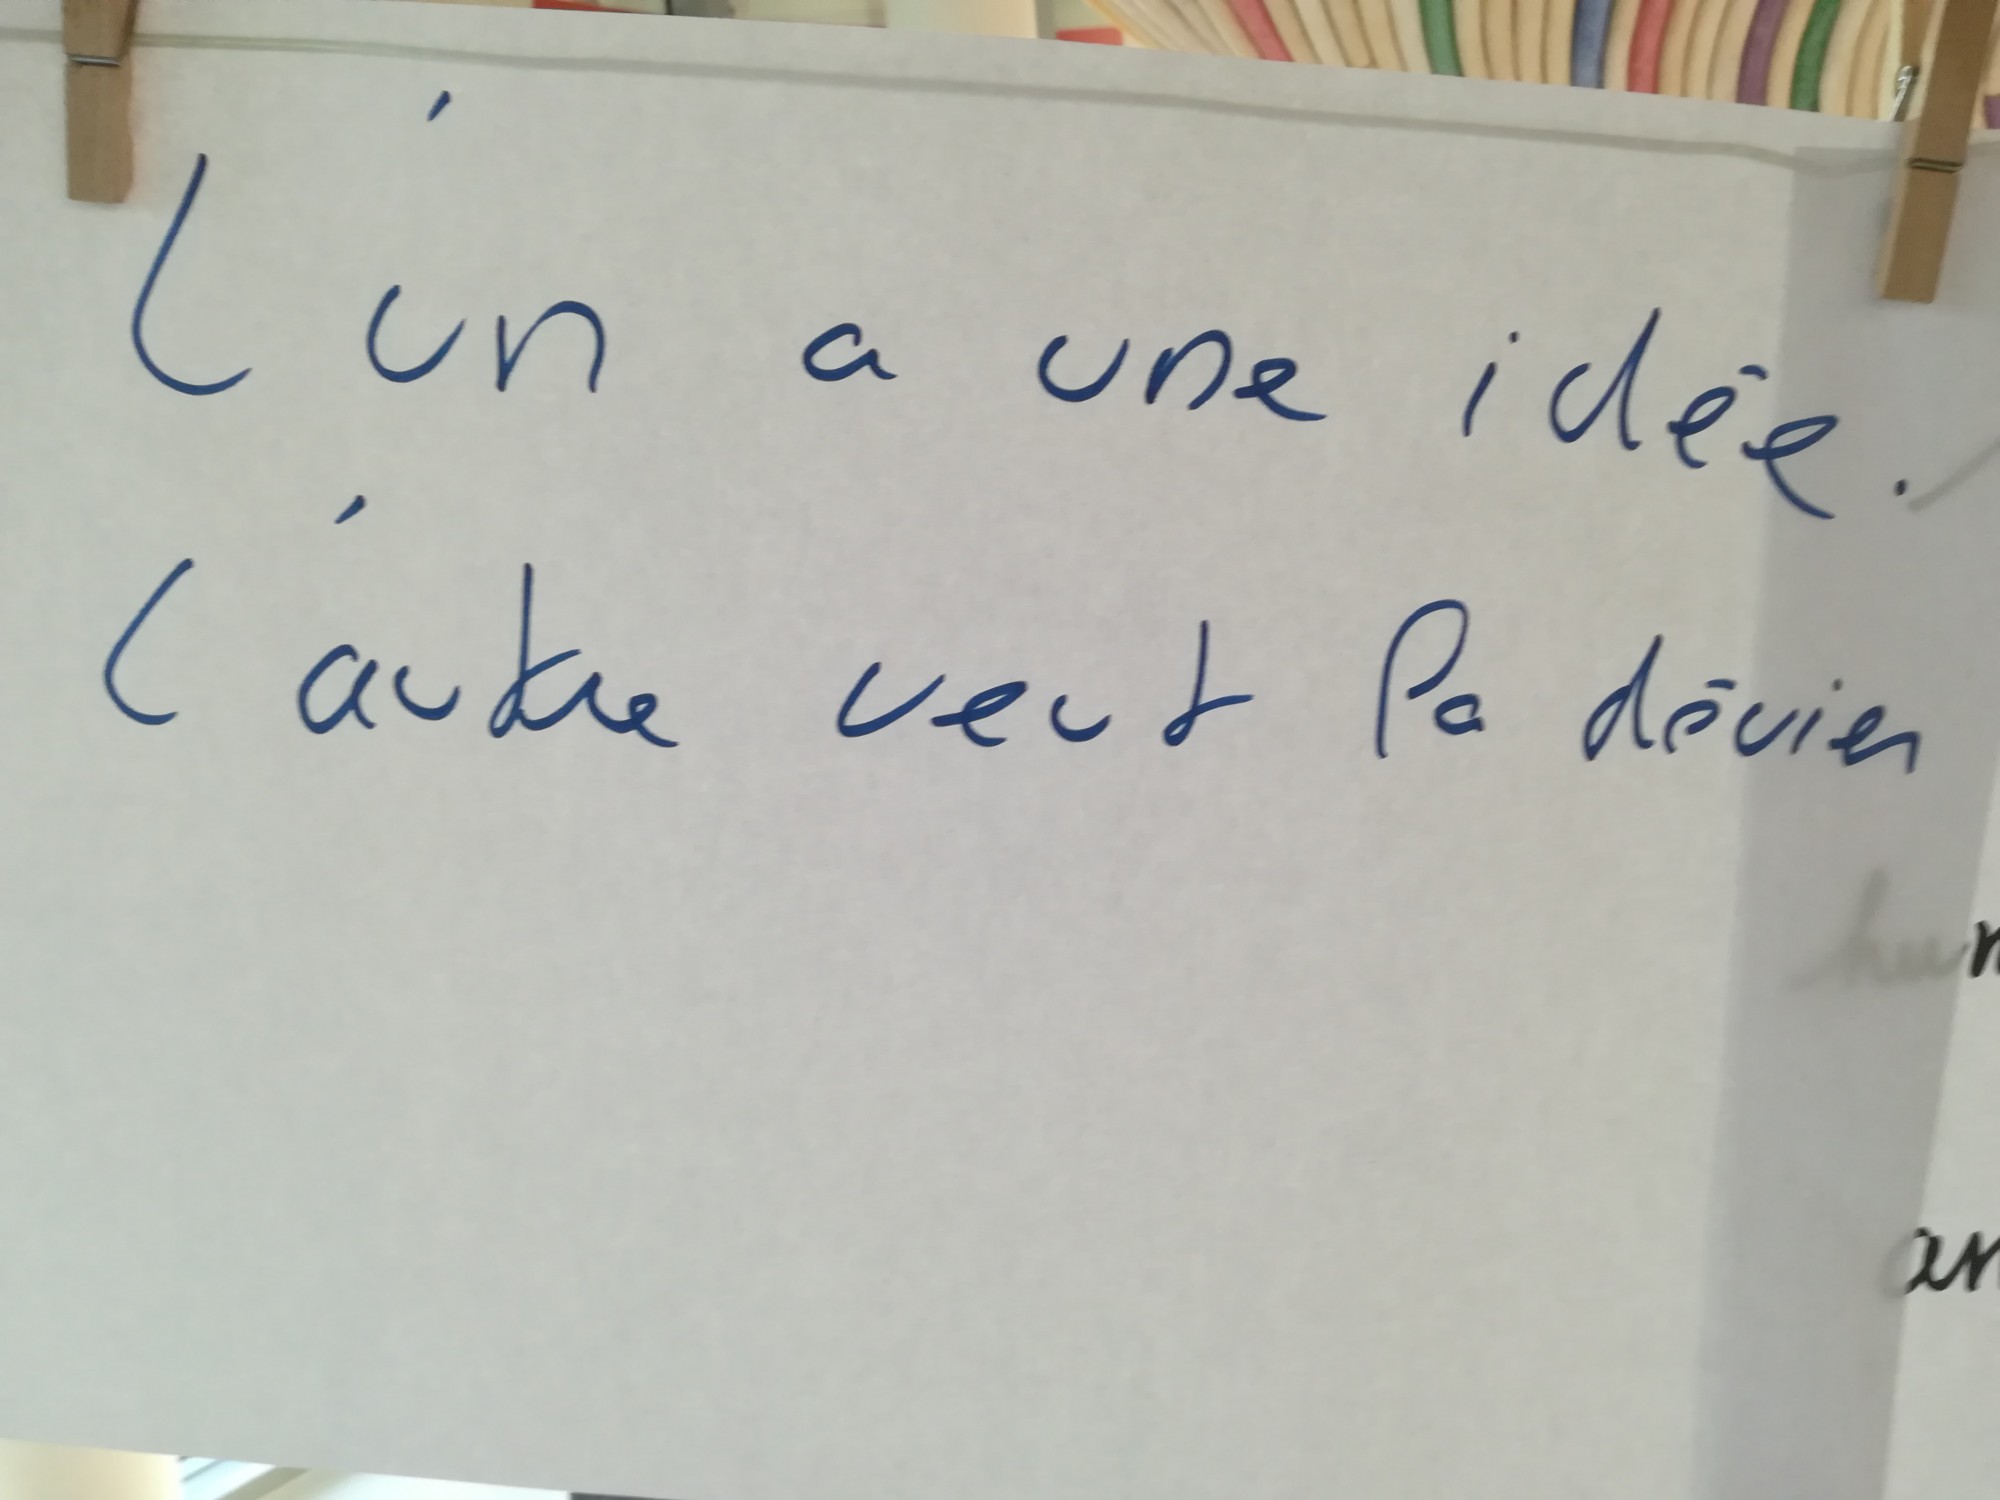 L'un a une idée.
L'autre veut la dévier